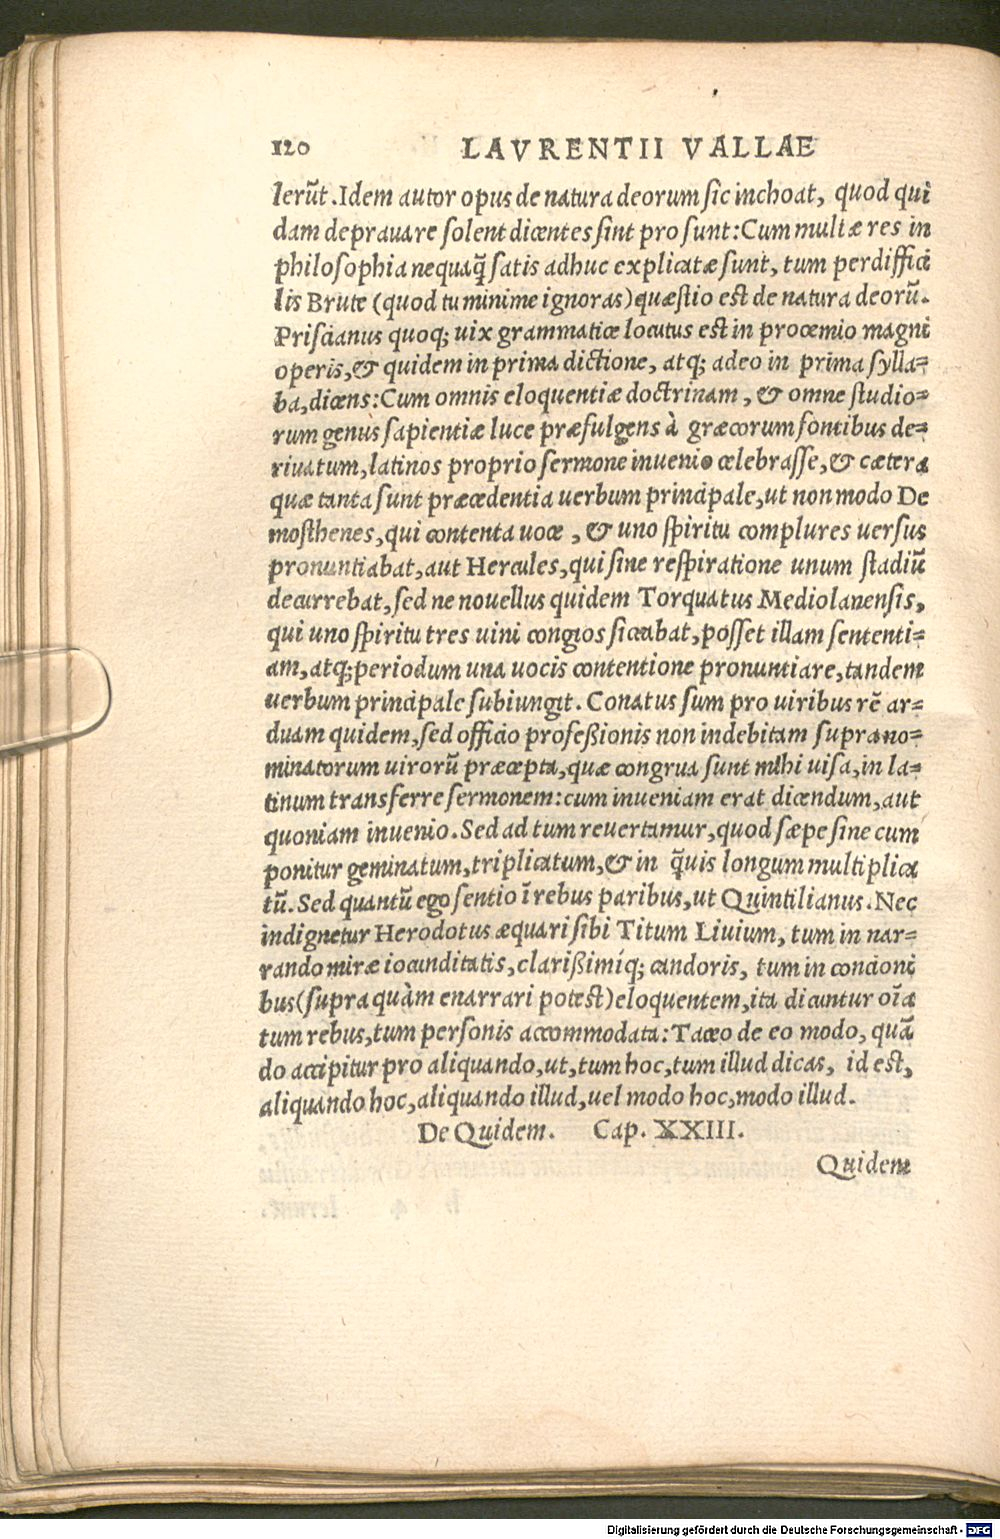 120 LAVRENTII VALLAE
lerũt. Idem autor opus de natura deorum sic inchoat, quod qui
dam deprauare solent dicentes sint pro sunt: Cum multæ res in
philosophia nequaq̃ satis adhuc explicatæ sunt, tum perdiffici
lis Brute (quod tu minime ignoras) quæstio est de natura deorũ.
Priscianus quoq; uix grammatice locutus est in prooemio magni
operis, & quidem in prima dictione, atq; adeo in prima sylla=
ba, dicens: Cum omnis eloquentiæ doctrinam, & omne studio=
rum genus sapientiæ luce præfulgens à græcorum fontibus de=
riuatum, latinos proprio sermone inuenio celebrasse, & cætera
quæ tanta sunt præcedentia uerbum principale, ut non modo De
mosthenes, qui contenta uoce, & uno spiritu complures uersus
pronuntiabat, aut Hercules, qui sine respiratione unum stadiũ
decurrebat, sed ne nouellus quidem Torquatus Mediolanensis,
qui uno spiritu tres uini congios siccabat, posset illam sententi=
am, atq; periodum una uocis contentione pronuntiare, tandem
uerbum principale subiungit. Conatus sum pro uiribus rẽ ar=
duam quidem, sed officio profeßionis non indebitam supra no=
minatorum uirorũ præcepta, quæ congrua sunt mihi uisa, in la=
tinum transferre sermonem: cum inueniam erat dicendum, aut
quoniam inuenio. Sed ad tum reuertamur, quod sæpe sine cum
ponitur geminatum, triplicatum, & in q̃uis longum multiplica
tũ. Sed quantũ ego sentio ĩ rebus paribus, ut Quintilianus. Nec
indignetur Herodotus æquari sibi Titum Liuium, tum in nar=
rando miræ iocunditatis, clarißimíq; candoris, tum in concioni
bus (supra quàm enarrari potest) eloquentem, ita dicuntur oĩa
tum rebus, tum personis accommodata: Taceo de eo modo, quã
do accipitur pro aliquando, ut, tum hoc, tum illud dicas, id est,
aliquando hoc, aliquando illud, uel modo hoc, modo illud.
De Quidem. Cap. XXIII.
Quidem
Digitalisierung gefördert durch die Deutsche Forschungsgemeinschaft - DFG